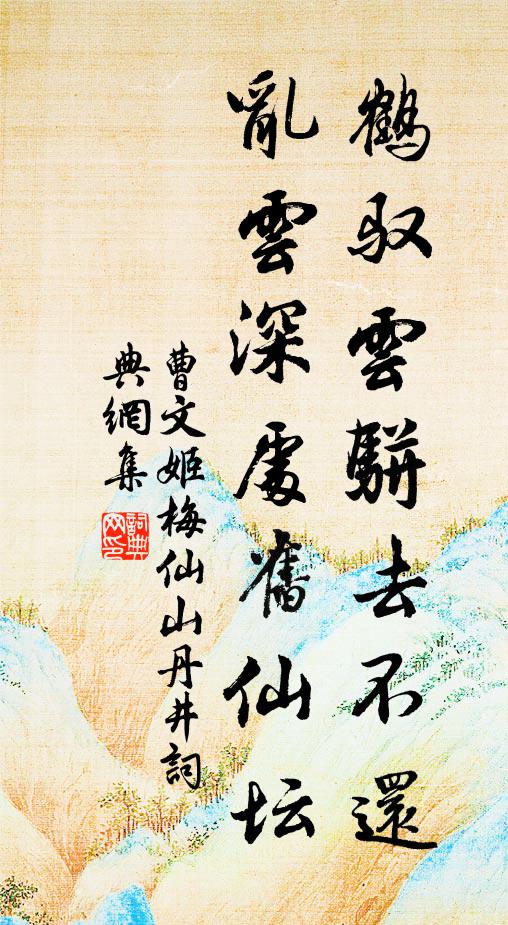 鶴驭雲駢去不還
亂雲深處舊仙坛
曹文姬梅仙山丹井詞
典網集
詞典
网印